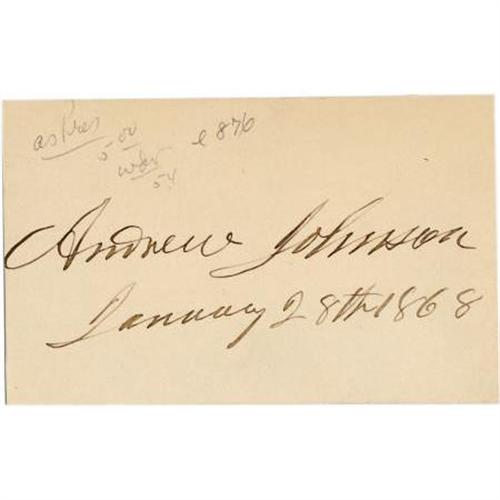 as Pres
5.00
e876
54
Andrew Johnson
January 28th 1868